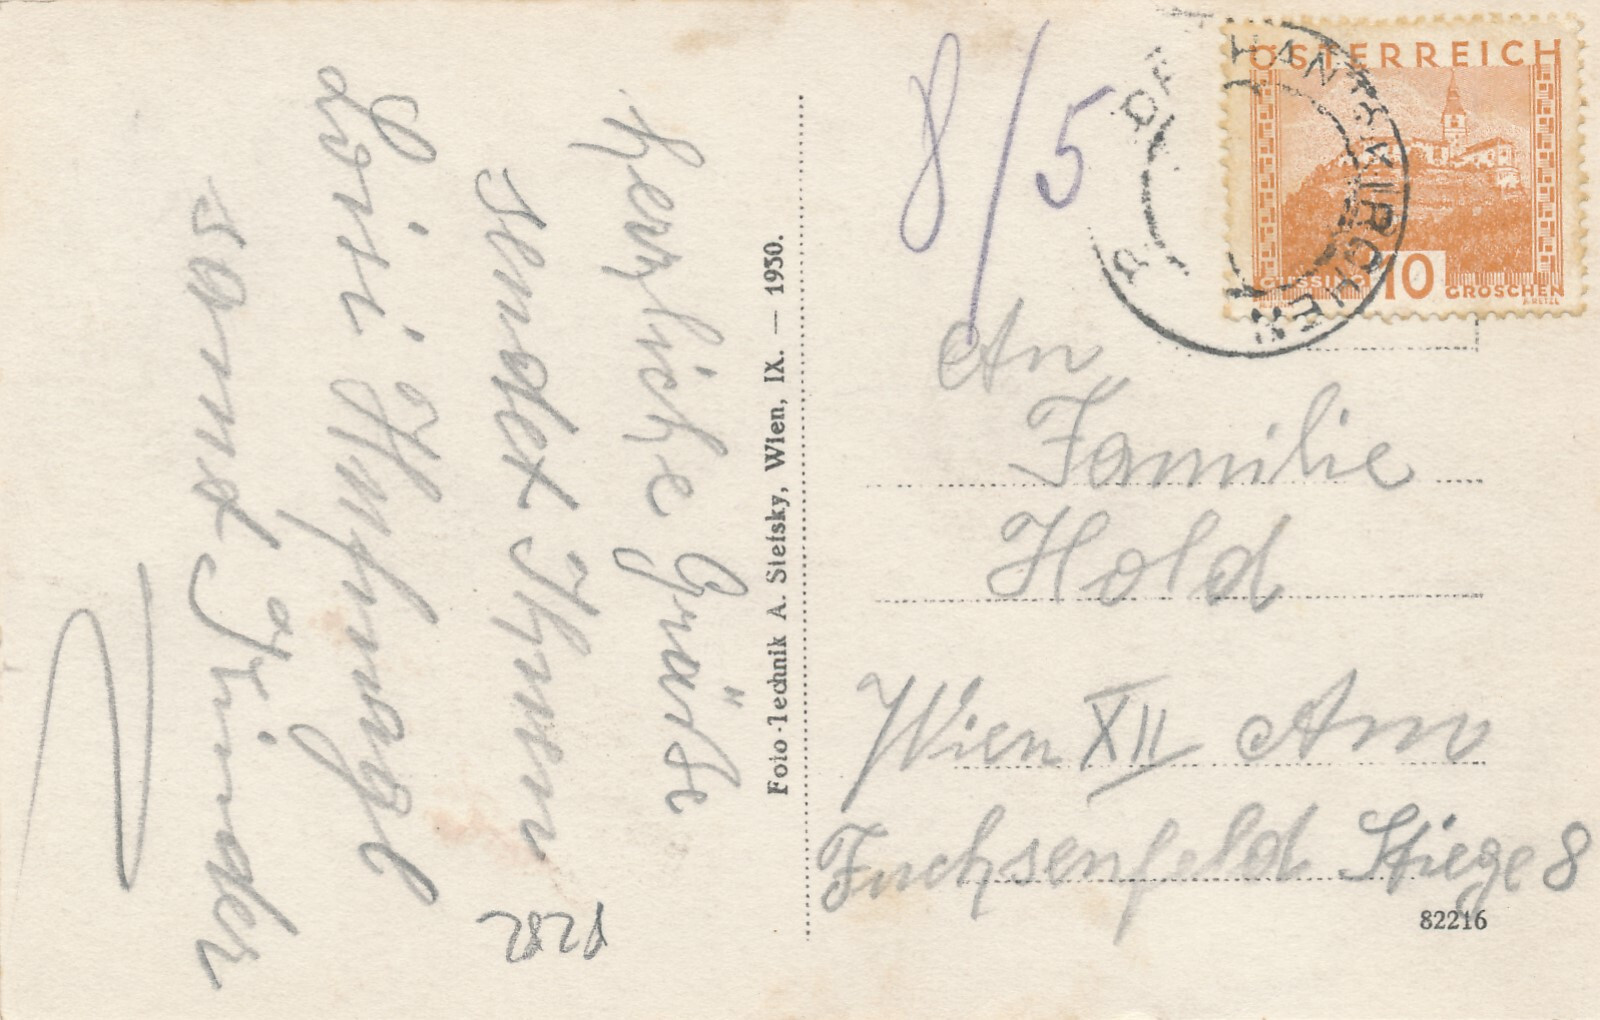 Herzliche Grüße
sendet Ihnen
Loisi
samt Kinder
Foto-Technik A. Stefsky, Wien, IX. — 1930.
8/5
ÖSTERREICH
GÜSSING 10 GROSCHEN
An
Familie
Hold
Wien XII Am
Fuchsenfeld Stiege 8
82216